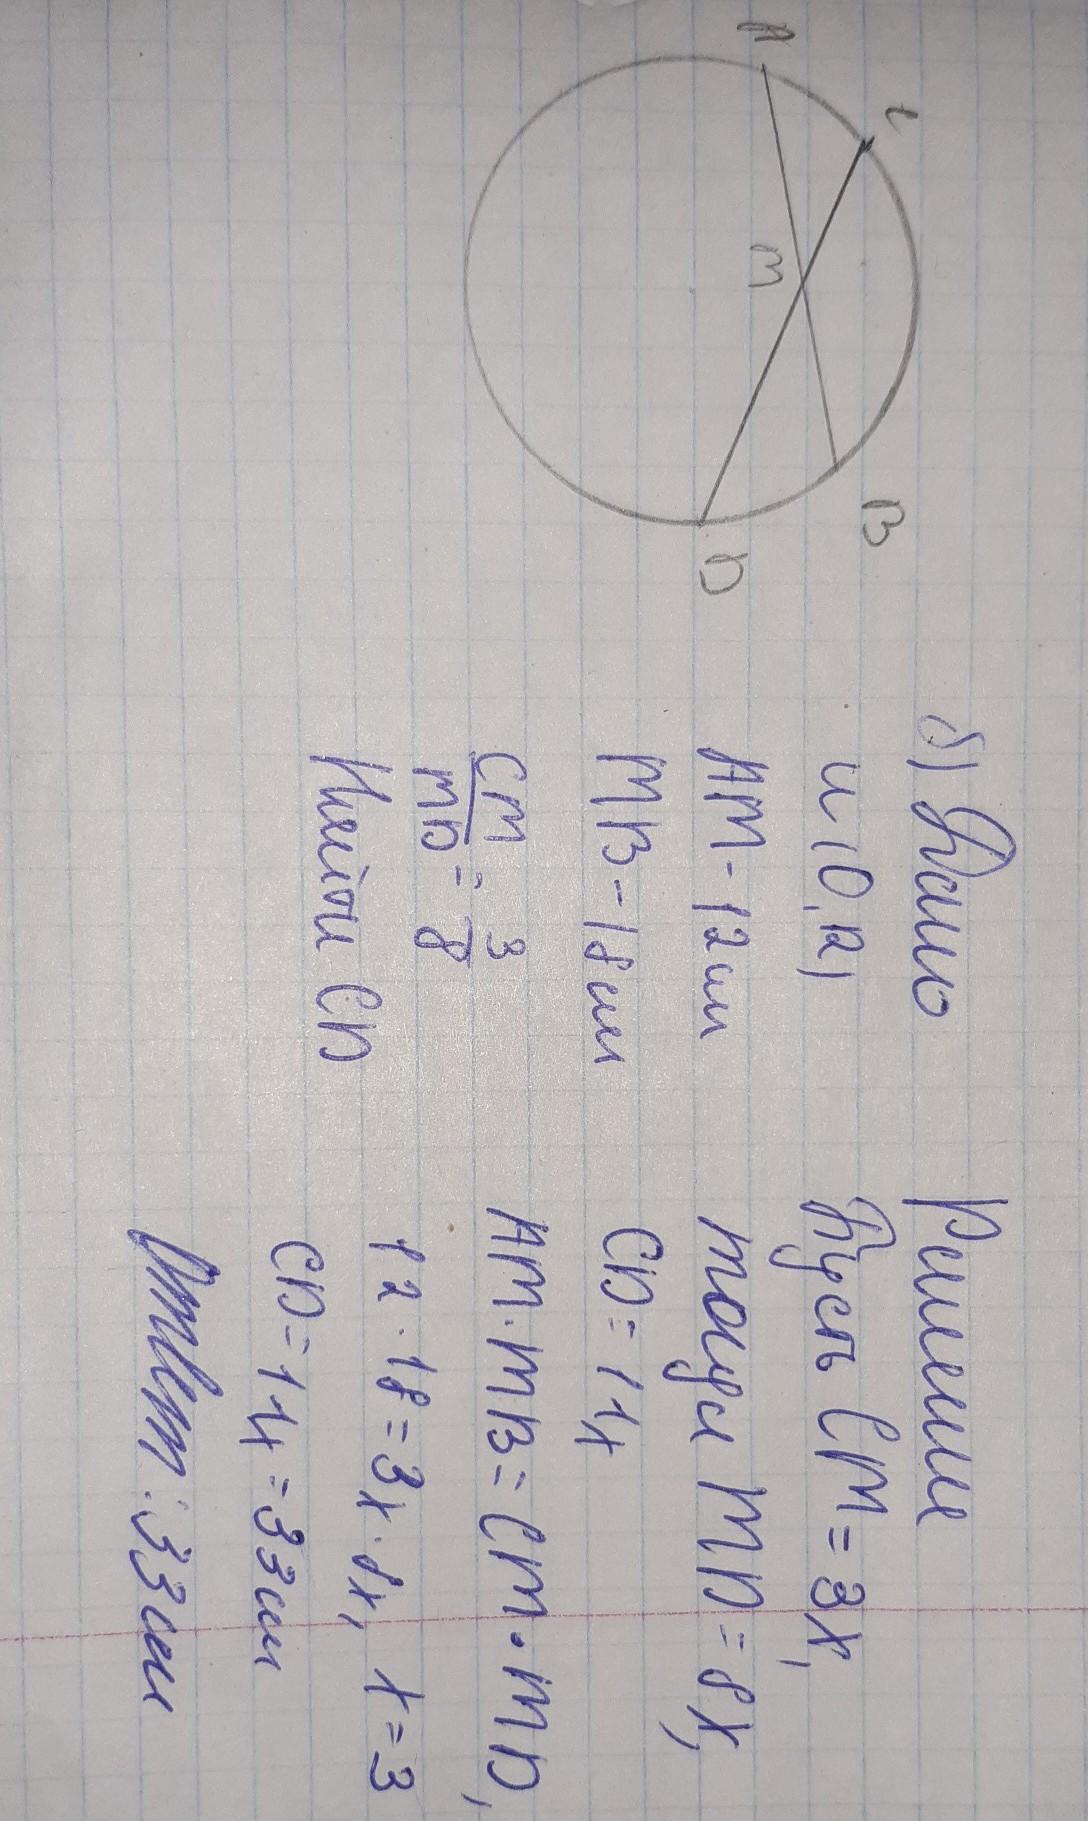 A
C
M
B
D
б) Дано
AM - 12 см
MB - 18 см
CM/MD = 3/8
Найти CD
Решение
Пусть CM = 3x,
тогда MD = 8x,
CD = 11x
AM · MB = CM · MD,
12 · 18 = 3x · 8x, x = 3
CD = 11x = 33 см
Ответ: 33 см